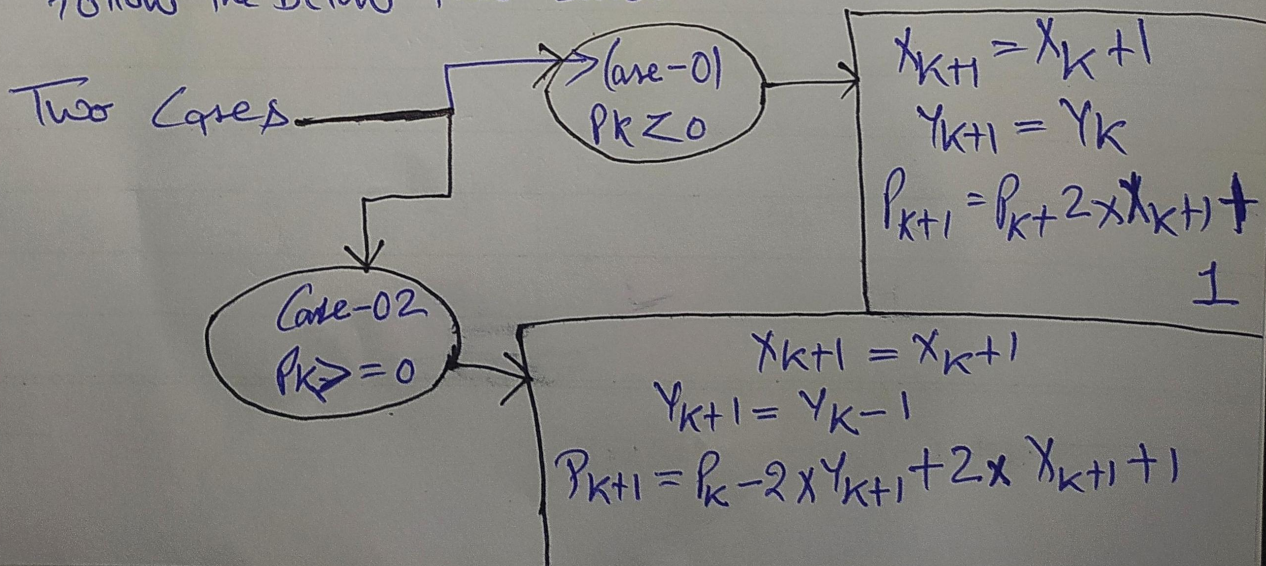 Follow the Below
Two Cases
Case-01
PK<0
XK+1 = XK+1
YK+1 = YK
PK+1 = PK+2×XK+1+
1
Case-02
PK>=0
XK+1 = XK+1
YK+1 = YK-1
PK+1 = PK-2×YK+1+2×XK+1+1